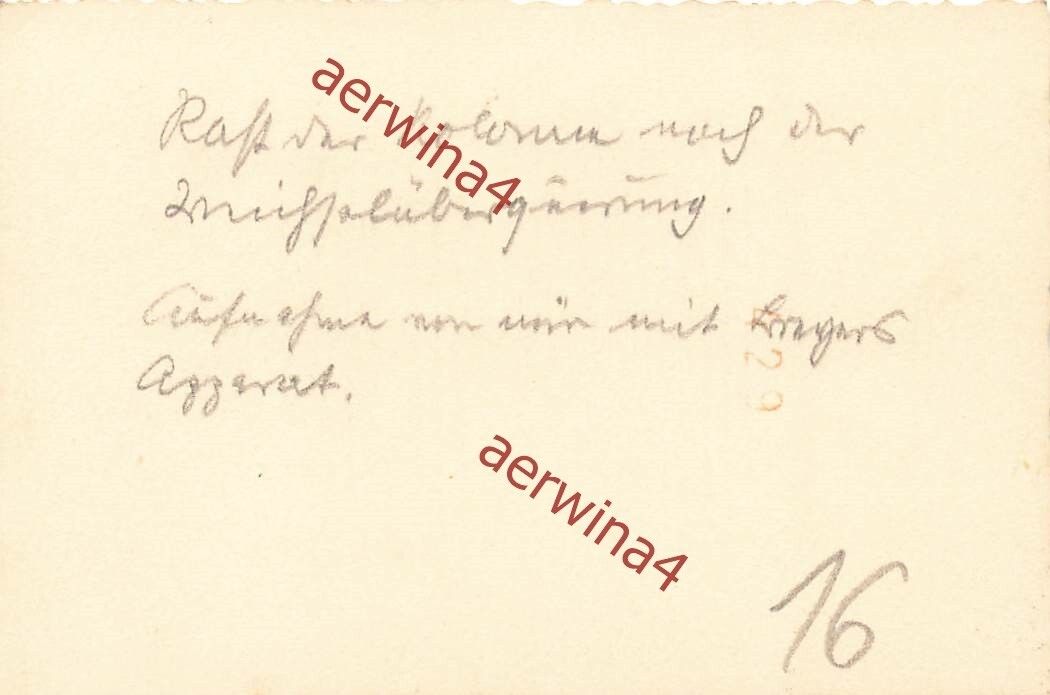 Rast der Kolonne nach der
Weichselüberquerung.
Aufnahme von mir mit Breyers
Apparat.
429
16
aerwina4
aerwina4